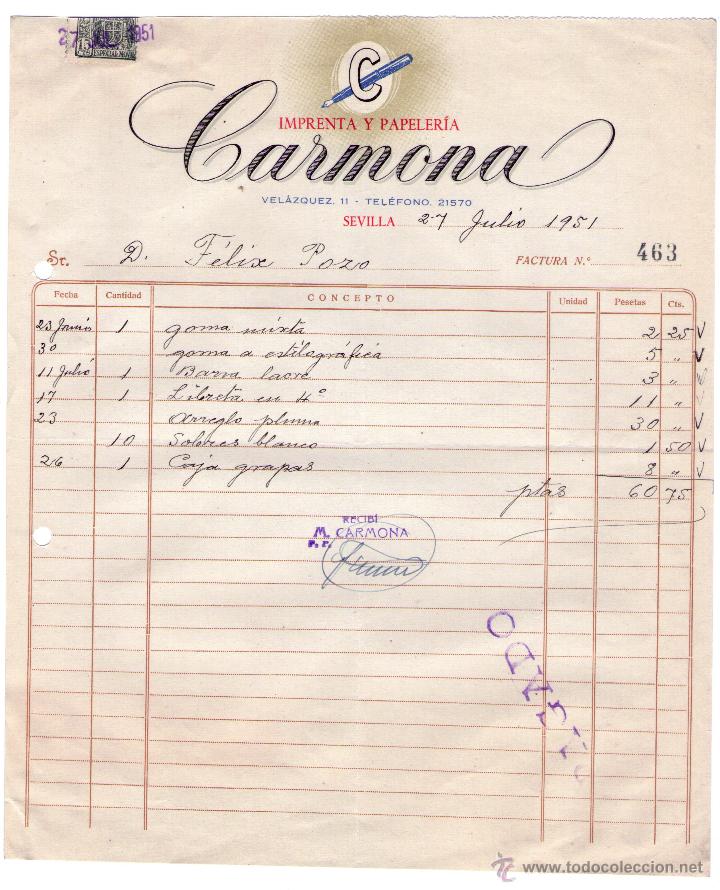 27 1951
15 cts
ESPECIAL MOVIL
C
IMPRENTA Y PAPELERÍA
Carmona
VELÁZQUEZ, 11 - TELÉFONO, 21570
SEVILLA 27 Julio 1951
Sr. D. Félix Pozo FACTURA N.º 463
Fecha Cantidad CONCEPTO Unidad Pesetas Cts.
23 Junio 1 goma mixta 2 25
30 goma a estilográfica 5 "
11 Julio 1 Barra lacre 3 "
17 1 Libreta en 4º 11 "
23 Arreglo pluma 30 "
10 Sobres blanco 1 50
26 1 Caja grapas 8 "
ptas 60 75
RECIBÍ
M. CARMONA
P. P.
PAGADO
www.todocoleccion.net